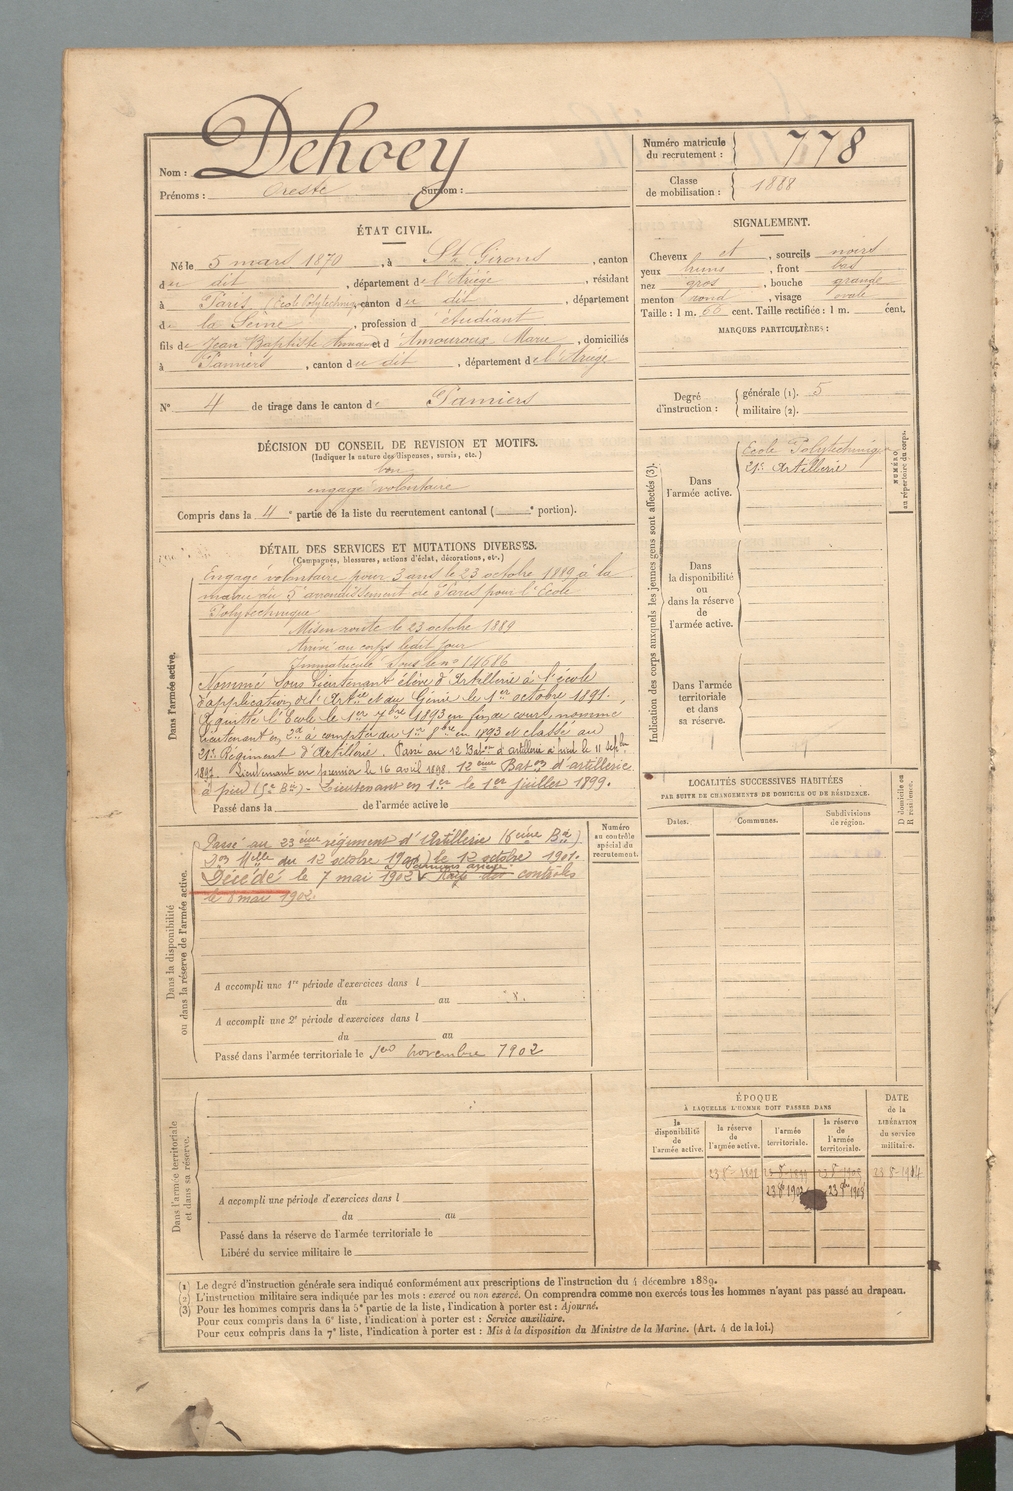 Nom : Dehoey
Prénoms : Oreste Surnom :
Numéro matricule du recrutement : 778
Classe de mobilisation : 1888
ÉTAT CIVIL.
Né le 5 mars 1870, à St Girons, canton
du dit, département de l'Ariège, résidant
à Paris (Ecole Polytechnique, canton du dit, département
de la Seine, profession d'étudiant
fils de Jean Baptiste et d'Amouroux Marie, domiciliés
à Pamiers, canton du dit, département de l'Ariège
N° 4 de tirage dans le canton de Pamiers
SIGNALEMENT.
Cheveux et, sourcils noirs
yeux bruns, front bas
nez gros, bouche grande
menton rond, visage ovale
Taille : 1 m. 66 cent. Taille rectifiée : 1 m. cent.
MARQUES PARTICULIÈRES :
Degré d'instruction :
générale (1). 5
militaire (2).
DÉCISION DU CONSEIL DE REVISION ET MOTIFS.
(Indiquer la nature des dispenses, sursis, etc.)
bon
engagé volontaire
Compris dans la 4e partie de la liste du recrutement cantonal ( e portion).
DÉTAIL DES SERVICES ET MUTATIONS DIVERSES.
(Campagnes, blessures, actions d'éclat, décorations, etc.)
Dans l'armée active.
Engagé volontaire pour 3 ans le 23 octobre 1889 à la
mairie du 5 arrondissement de Paris pour l'Ecole
Polytechnique
Mis en route le 23 octobre 1889
Arrivé au corps ledit jour
Immatriculé sous le n° 14686
Nommé Sous Lieutenant élève d'Artillerie à l'école
d'application de l'Artie et du Génie le 1er octobre 1891.
A quitté l'Ecole le 1er 7bre 1893 en fin de cours, nommé
Lieutenant en 2d à compter du 1er 8bre 1893 et classé au
21e Régiment d'Artillerie. Passé au 12 Baton d'artillerie à pied le 11 Septbre
1897. Lieutenant en premier le 16 avril 1898. 12ème Baton d'artillerie
à pied (5e Bie) - Lieutenant en 1er le 1er juillet 1899.
Passé dans la de l'armée active le
Indication des corps auxquels les jeunes gens sont affectés (3).
NUMÉRO au répertoire du corps.
Dans l'armée active.
Ecole Polytechnique
21e Artillerie
Dans la disponibilité ou dans la réserve de l'armée active.
Dans l'armée territoriale et dans sa réserve.
Dans la disponibilité ou dans la réserve de l'armée active.
Numéro au contrôle spécial du recrutement.
Passé au 23ème régiment d'Artillerie (6ème Bie)
Don Mlle du 12 octobre 1901) le 12 octobre 1901.
Décédé le 7 mai 1902 Pamiers Ariège Rayé des contrôles
le 8 mai 1902
A accompli une 1re période d'exercices dans l
du au
A accompli une 2e période d'exercices dans l
du au
Passé dans l'armée territoriale le 1er novembre 1902
LOCALITÉS SUCCESSIVES HABITÉES
PAR SUITE DE CHANGEMENTS DE DOMICILE OU DE RÉSIDENCE.
Dates. Communes. Subdivisions de région.
D domicile ou R résidence.
Dans l'armée territoriale et dans sa réserve.
A accompli une période d'exercices dans l
du au
Passé dans la réserve de l'armée territoriale le
Libéré du service militaire le
ÉPOQUE
À LAQUELLE L'HOMME DOIT PASSER DANS
la disponibilité de l'armée active.
la réserve de l'armée active.
l'armée territoriale.
la réserve de l'armée territoriale.
DATE de la LIBÉRATION du service militaire.
23 8e 1892 23 8 1899 23 8 1908 23 8 1914
23 8bre 1902 23 8bre 1908
(1) Le degré d'instruction générale sera indiqué conformément aux prescriptions de l'instruction du 4 décembre 1889.
(2) L'instruction militaire sera indiquée par les mots : exercé ou non exercé. On comprendra comme non exercés tous les hommes n'ayant pas passé au drapeau.
(3) Pour les hommes compris dans la 5e partie de la liste, l'indication à porter est : Ajourné.
Pour ceux compris dans la 6e liste, l'indication à porter est : Service auxiliaire.
Pour ceux compris dans la 7e liste, l'indication à porter est : Mis à la disposition du Ministre de la Marine. (Art. 4 de la loi.)